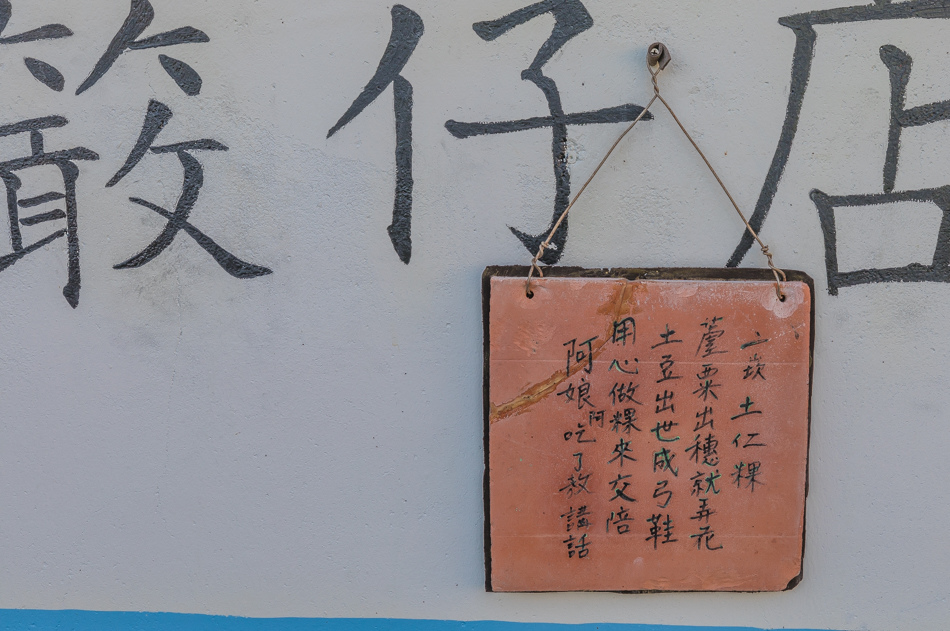 𥴊仔店
二崁 土仁粿
蘆粟出穗就弄花
土豆出世成弓鞋
用心做粿來交陪
阿娘阿吃了敖講話